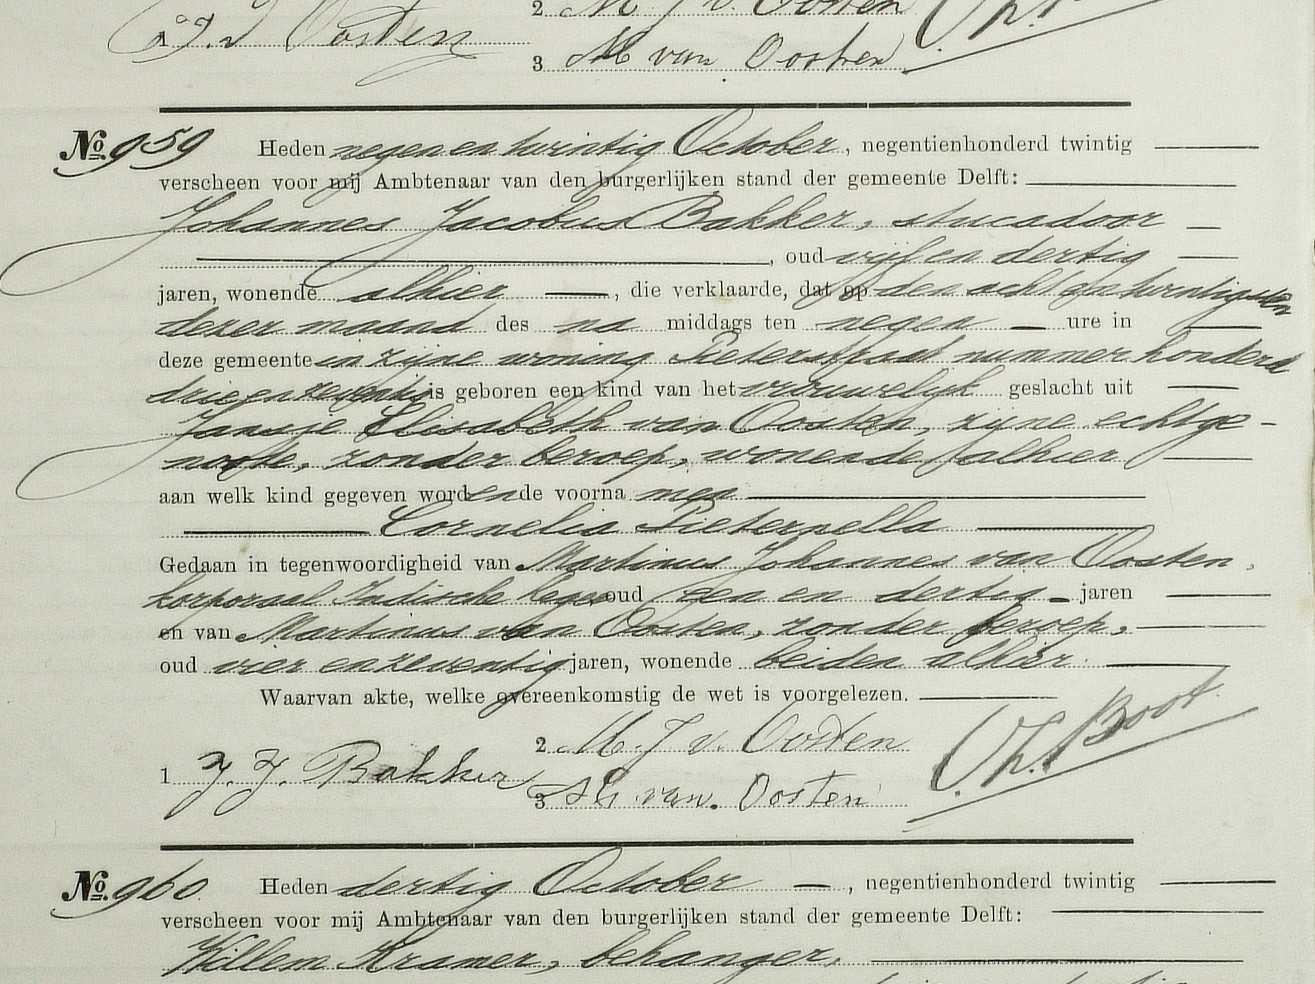 2 M. J v. Oosten
1 J. J Oosten
3 M van Oosten
No. 959 Heden negen en twintig October, negentienhonderd twintig
verscheen voor mij Ambtenaar van den burgerlijken stand der gemeente Delft:
Johannes Jacobus Bakker, stucadoor
, oud vijf en dertig
jaren, wonende alhier, die verklaarde, dat op den acht en twintigsten
dezer maand des na middags ten negen ure in
deze gemeente in zijne woning Pieterstraat nummer honderd
drie en zeventig is geboren een kind van het vrouwelijk geslacht uit
Jansje Elisabeth van Oosten, zijne echtge-
noote, zonder beroep, wonende alhier
aan welk kind gegeven wordende voorna men
Cornelia Pieternella
Gedaan in tegenwoordigheid van Martinus Johannes van Oosten,
korporaal Indische leger oud een en dertig jaren
en van Martinus van Oosten, zonder beroep,
oud vier en zeventig jaren, wonende beiden alhier.
Waarvan akte, welke overeenkomstig de wet is voorgelezen.
2 M. J v. Oosten
1 J. J. Bakker
Ch. Boot
3 M van Oosten
No. 960 Heden dertig October, negentienhonderd twintig
verscheen voor mij Ambtenaar van den burgerlijken stand der gemeente Delft:
Willem Kramer, behanger,